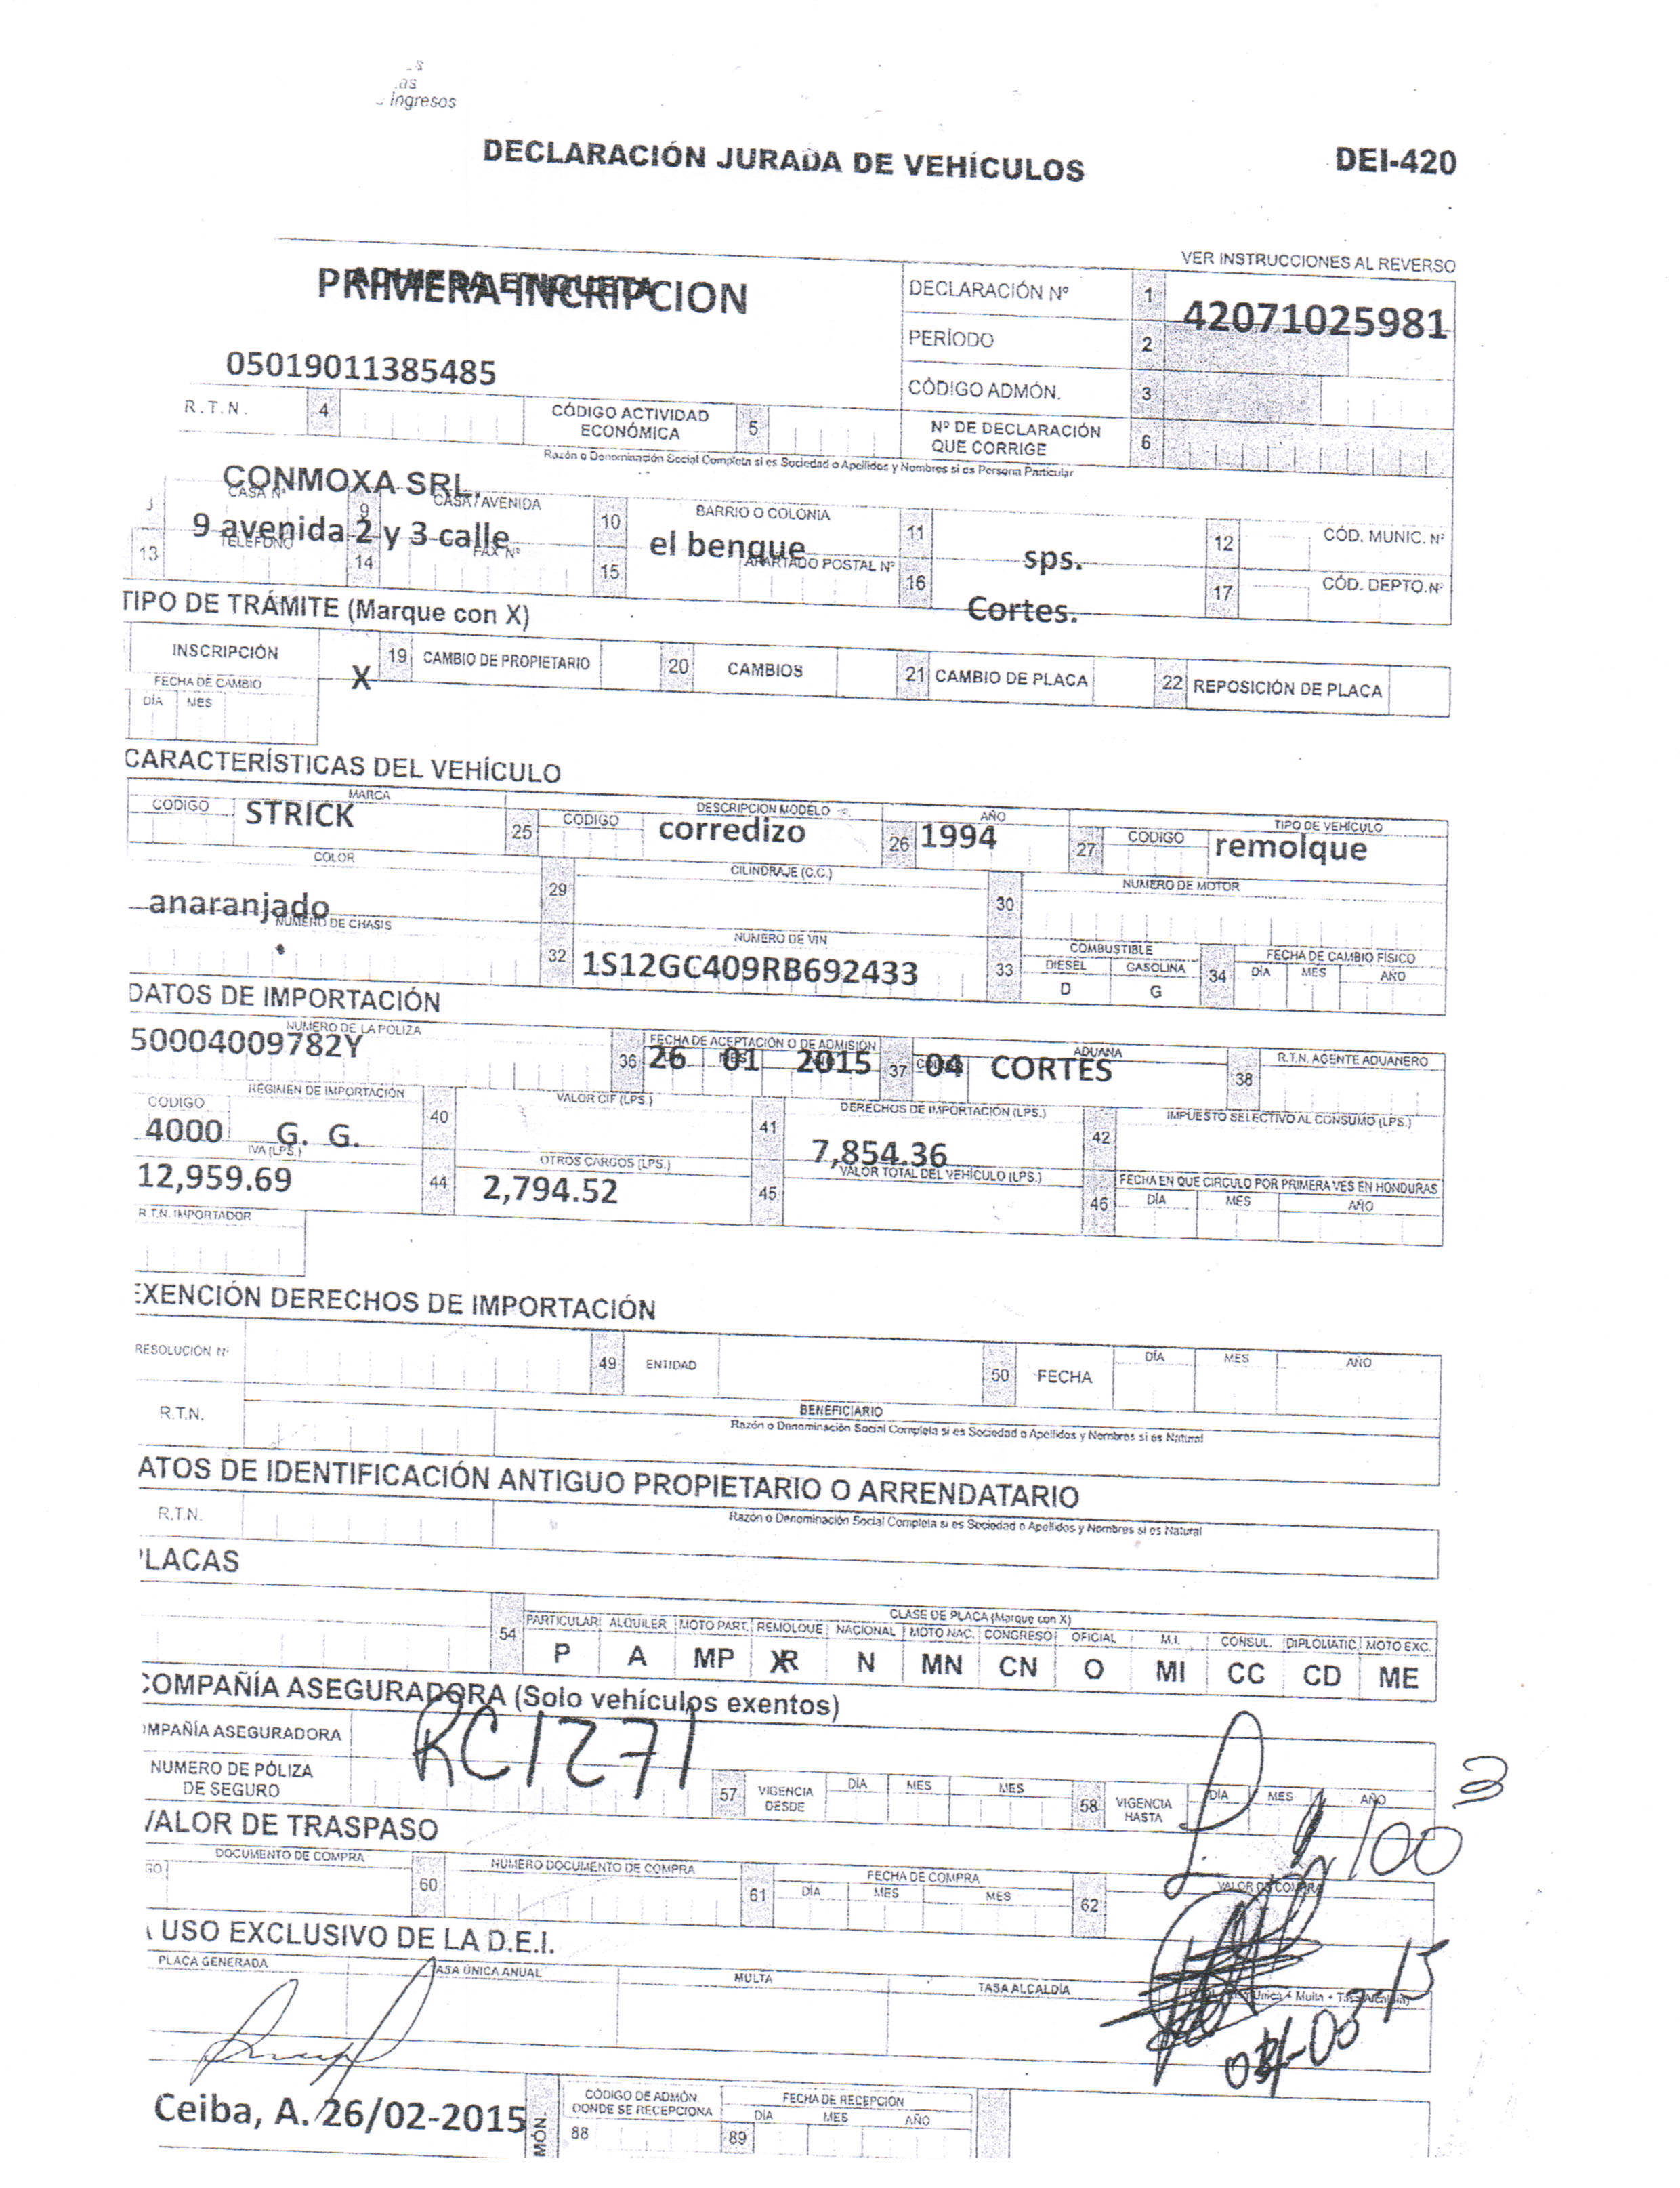 as
Ingresos
DECLARACIÓN JURADA DE VEHÍCULOS DEI-420
VER INSTRUCCIONES AL REVERSO
ADHIERA ETIQUETA
PRIMERA INCRIPCION
DECLARACIÓN Nº 1 42071025981
PERÍODO 2
05019011385485
CÓDIGO ADMÓN. 3
R.T.N. 4 CÓDIGO ACTIVIDAD ECONÓMICA 5 Nº DE DECLARACIÓN QUE CORRIGE 6
Razón o Denominación Social Completa si es Sociedad o Apellidos y Nombres si es Persona Particular
CONMOXA SRL.
CASA Nº 9 CASA / AVENIDA 10 BARRIO O COLONIA 11 12 CÓD. MUNIC. Nº
9 avenida 2 y 3 calle el benque sps.
13 TELEFONO 14 FAX Nº 15 APARTADO POSTAL Nº 16 Cortes. 17 CÓD. DEPTO. Nº
TIPO DE TRÁMITE (Marque con X)
INSCRIPCIÓN X 19 CAMBIO DE PROPIETARIO 20 CAMBIOS 21 CAMBIO DE PLACA 22 REPOSICIÓN DE PLACA
FECHA DE CAMBIO
DÍA MES
CARACTERÍSTICAS DEL VEHÍCULO
MARCA DESCRIPCION MODELO AÑO TIPO DE VEHÍCULO
CODIGO STRICK 25 CODIGO corredizo 26 1994 27 CODIGO remolque
COLOR 29 CILINDRAJE (C.C.) 30 NUMERO DE MOTOR
anaranjado
NUMERO DE CHASIS 32 NUMERO DE VIN 33 COMBUSTIBLE 34 FECHA DE CAMBIO FÍSICO
1S12GC409RB692433 DIESEL GASOLINA DÍA MES AÑO
D G
DATOS DE IMPORTACIÓN
NUMERO DE LA POLIZA 36 FECHA DE ACEPTACIÓN O DE ADMISION 37 ADUANA 38 R.T.N. AGENTE ADUANERO
50004009782Y 26 01 2015 04 CORTES
REGIMEN DE IMPORTACIÓN 40 VALOR CIF (LPS.) 41 DERECHOS DE IMPORTACIÓN (LPS.) 42 IMPUESTO SELECTIVO AL CONSUMO (LPS.)
CODIGO
4000 G. G. 7,854.36
IVA (LPS.) 44 OTROS CARGOS (LPS.) 45 VALOR TOTAL DEL VEHÍCULO (LPS.) 46 FECHA EN QUE CIRCULO POR PRIMERA VES EN HONDURAS
12,959.69 2,794.52 DÍA MES AÑO
R.T.N. IMPORTADOR
EXENCIÓN DERECHOS DE IMPORTACIÓN
RESOLUCIÓN Nº 49 ENTIDAD 50 FECHA DÍA MES AÑO
R.T.N. BENEFICIARIO
Razón o Denominación Social Completa si es Sociedad o Apellidos y Nombres si es Natural
ATOS DE IDENTIFICACIÓN ANTIGUO PROPIETARIO O ARRENDATARIO
R.T.N. Razón o Denominación Social Completa si es Sociedad o Apellidos y Nombres si es Natural
LACAS
54 CLASE DE PLACA (Marque con X)
PARTICULAR ALQUILER MOTO PART. REMOLQUE NACIONAL MOTO NAC. CONGRESO OFICIAL M.I. CONSUL. DIPLOMATIC. MOTO EXC.
P A MP XR N MN CN O MI CC CD ME
COMPAÑÍA ASEGURADORA (Solo vehículos exentos)
MPAÑÍA ASEGURADORA RC1271
NUMERO DE PÓLIZA DE SEGURO 57 VIGENCIA DESDE DÍA MES MES 58 VIGENCIA HASTA DÍA MES AÑO
VALOR DE TRASPASO
DOCUMENTO DE COMPRA 60 NUMERO DOCUMENTO DE COMPRA 61 FECHA DE COMPRA 62 VALOR DE COMPRA
DÍA MES MES
A USO EXCLUSIVO DE LA D.E.I.
PLACA GENERADA TASA ÚNICA ANUAL MULTA TASA ALCALDÍA
Ceiba, A. 26/02-2015
MÓN. CÓDIGO DE ADMÓN DONDE SE RECEPCIONA FECHA DE RECEPCION
88 89 DÍA MES AÑO